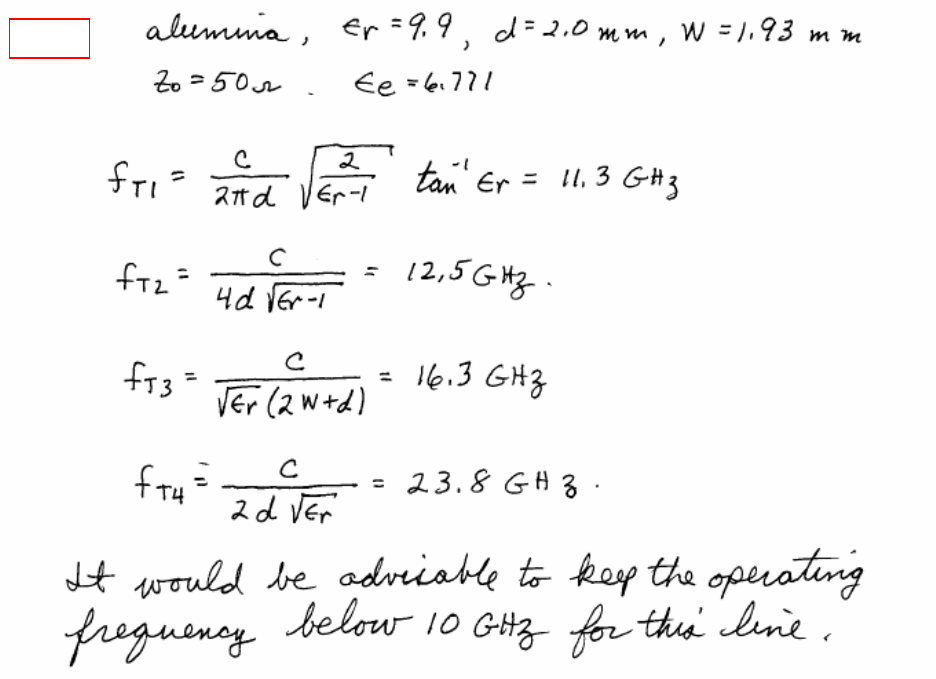 alumina, ϵr = 9.9, d = 2.0 mm, W = 1.93 mm
Z₀ = 50 Ω. ϵe = 6.771
f_T1 = C/(2πd) √(2/(ϵr-1)) tan⁻¹ ϵr = 11.3 GHz
f_T2 = C/(4d √(ϵr-1)) = 12,5 GHz.
f_T3 = C/(√ϵr (2W+d)) = 16.3 GHz
f_T4 = C/(2d √ϵr) = 23.8 GHz.
It would be advisable to keep the operating
frequency below 10 GHz for this line.